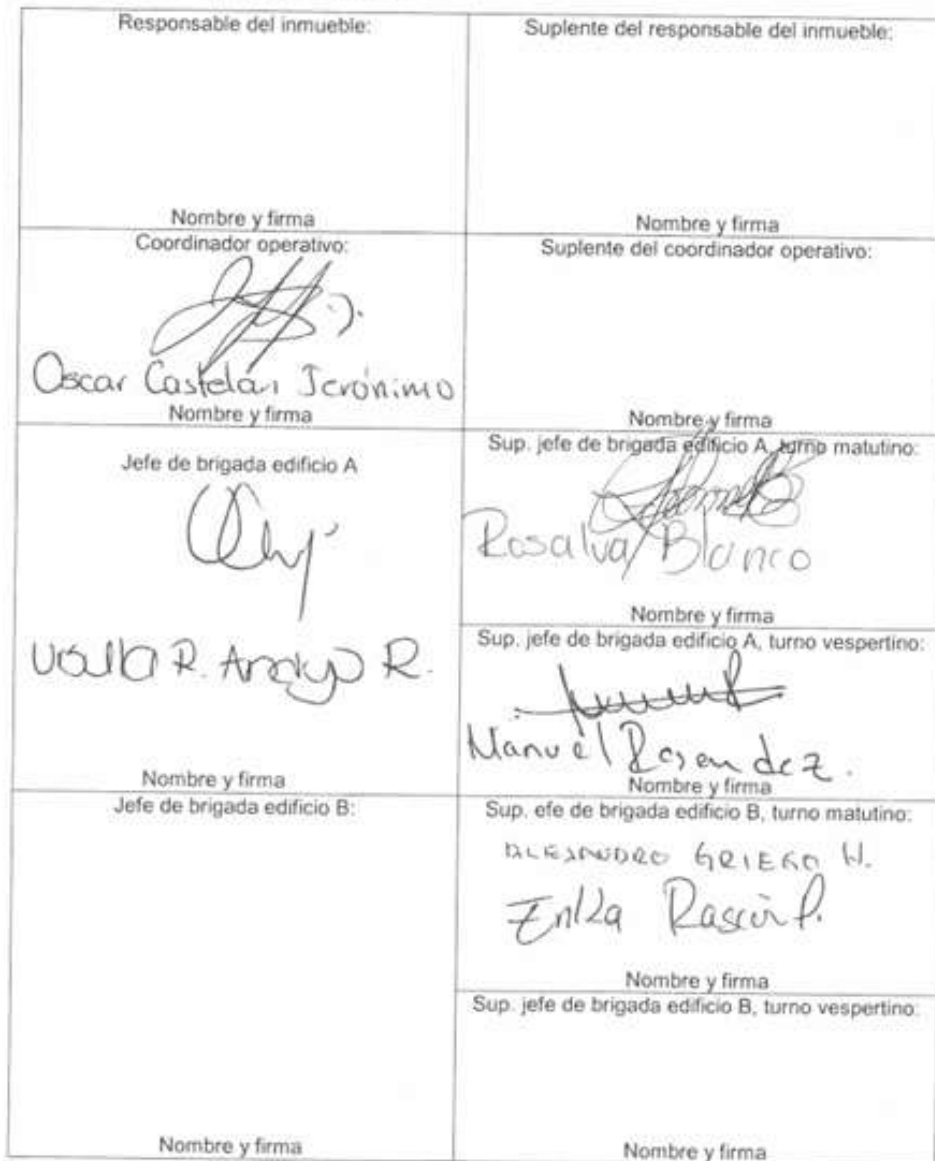 Responsable del inmueble:
Nombre y firma
Suplente del responsable del inmueble:
Nombre y firma
Coordinador operativo:
Oscar Castelán Jerónimo
Nombre y firma
Suplente del coordinador operativo:
Nombre y firma
Jefe de brigada edificio A
R. Araujo R.
Nombre y firma
Sup. jefe de brigada edificio A, turno matutino:
Rosalva Blanco
Nombre y firma
Sup. jefe de brigada edificio A, turno vespertino:
Manuel Resendez.
Nombre y firma
Jefe de brigada edificio B:
Nombre y firma
Sup. efe de brigada edificio B, turno matutino:
ALEJANDRO GRIEGO H.
Rascón P.
Nombre y firma
Sup. jefe de brigada edificio B, turno vespertino:
Nombre y firma